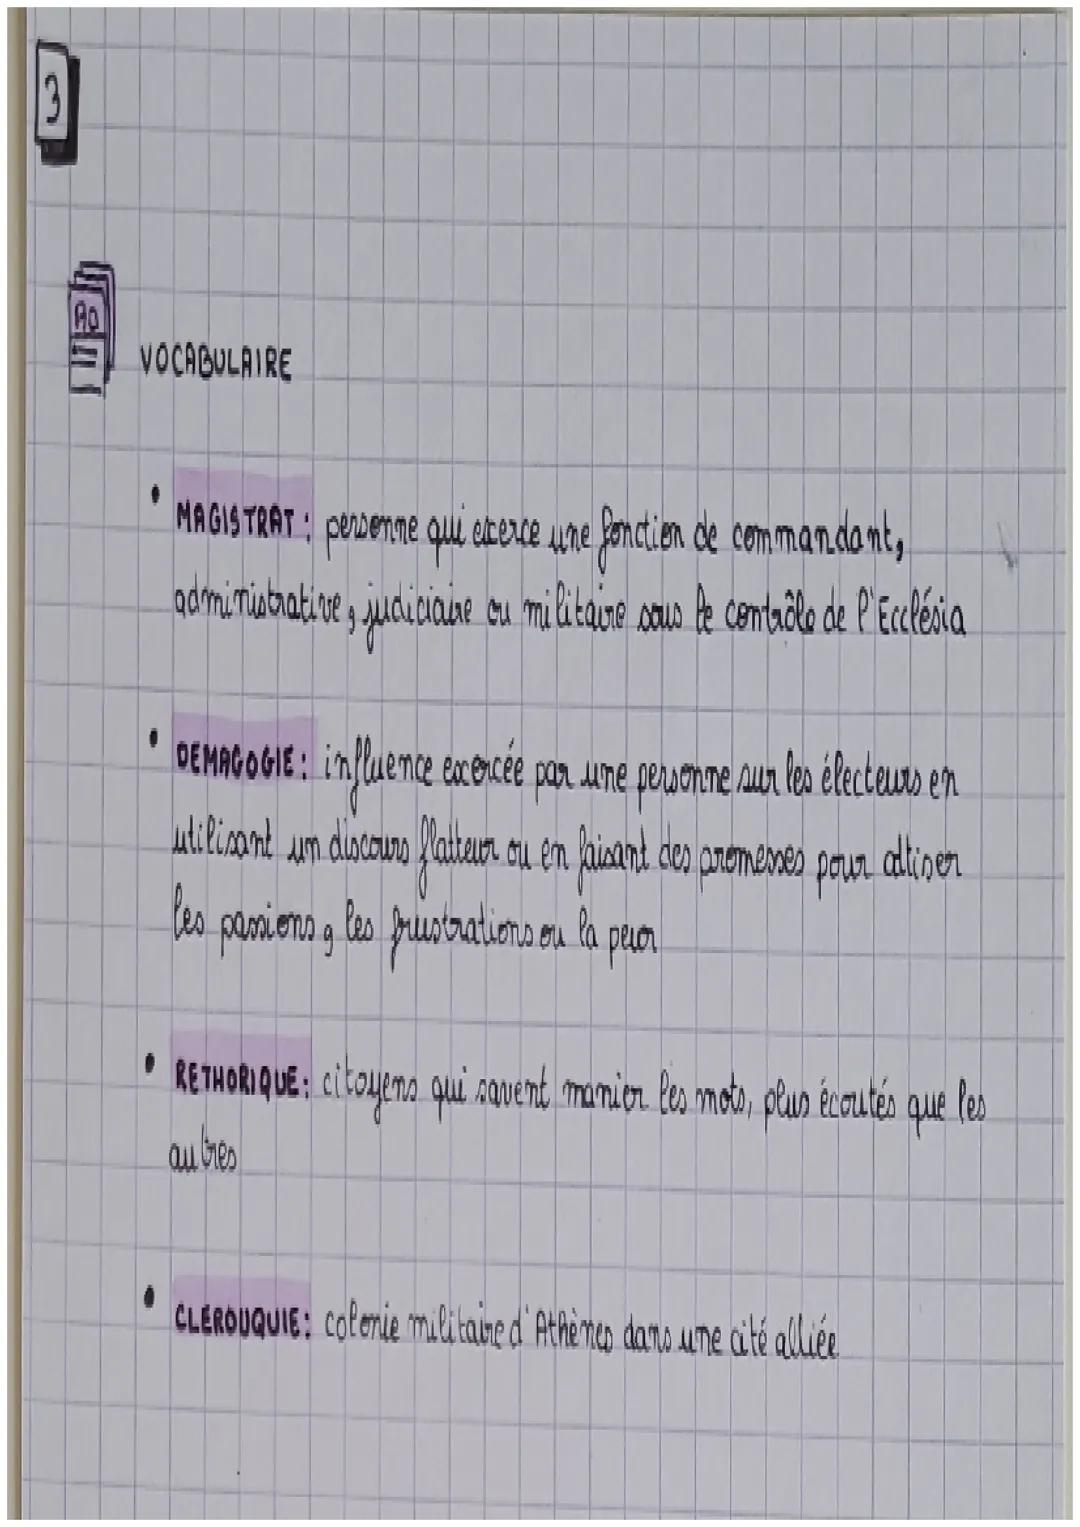 3
AO
VOCABULAIRE
• MAGISTRAT : personne qui exerce une fonction de commandant,
administrative, judiciaire ou militaire sous le contrôle de l'Ecclésia
• DEMAGOGIE : influence exercée par une personne sur les électeurs en
utilisant un discours flatteur ou en faisant des promesses pour attiser
les passions, les frustrations ou la peur
• RETHORIQUE : citoyens qui savent manier les mots, plus écoutés que les
autres
• CLEROUQUIE : colonie militaire d'Athènes dans une cité alliée